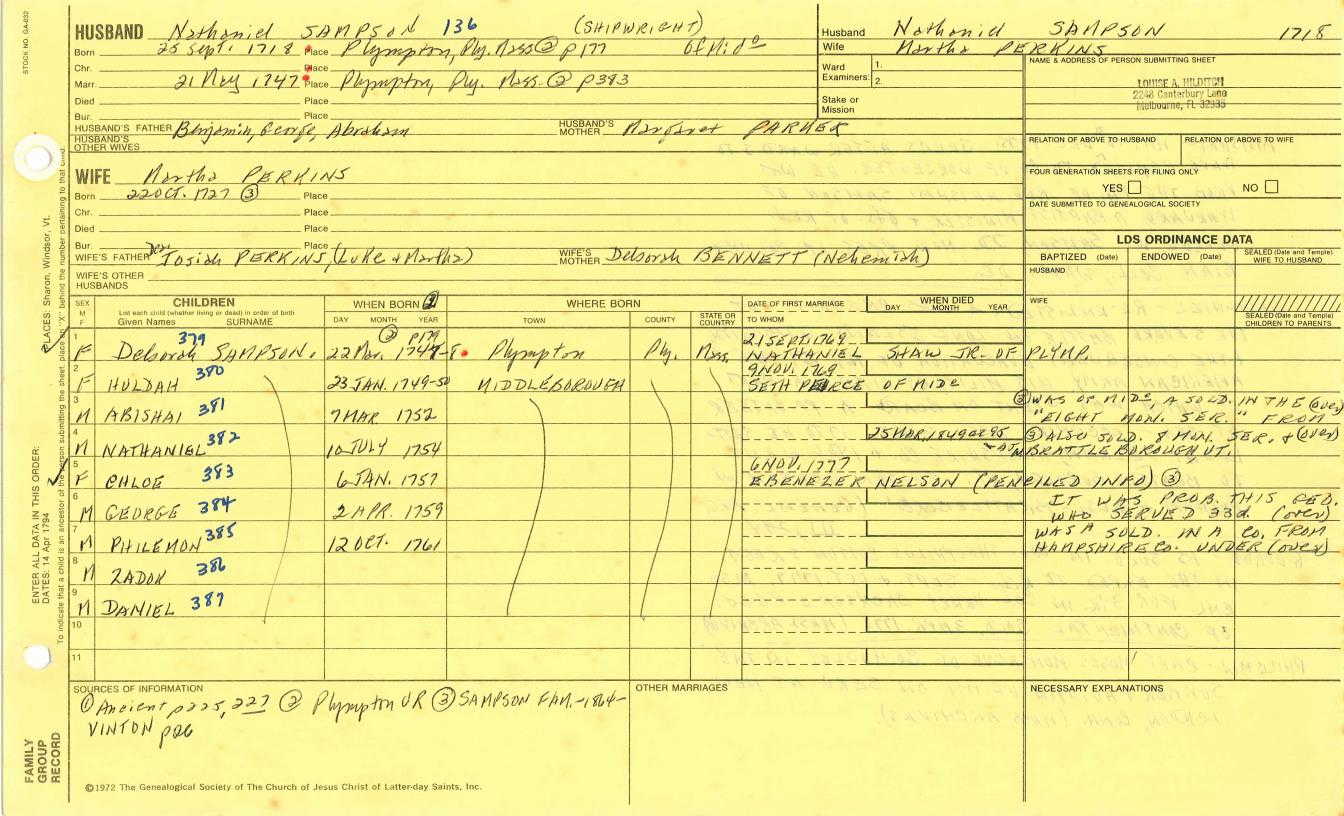 STOCK NO. GA-032
HUSBAND Nathaniel SAMPSON 136 (SHIPWRIGHT)
Born 25 Sept. 1718 Place Plympton, Ply. Mass ② p177 of Mid°
Chr. Place
Marr. 21 May 1747 Place Plympton, Ply. Mass. ② p383
Died Place
Bur. Place
HUSBAND'S FATHER Benjamin, George, Abraham HUSBAND'S MOTHER Margaret PARKER
HUSBAND'S OTHER WIVES
WIFE Martha PERKINS
Born 22 OCT. 1727 ③ Place
Chr. Place
Died Place
Bur. Place
WIFE'S FATHER Josiah PERKINS, (Luke & Martha) WIFE'S MOTHER Deborah BENNETT (Nehemiah)
WIFE'S OTHER HUSBANDS
Husband Nathaniel SAMPSON 1718
Wife Martha PERKINS
Ward Examiners: 1.
2.
Stake or Mission
NAME & ADDRESS OF PERSON SUBMITTING SHEET
LOUISE A. HILDITCH
2248 Canterbury Lane
Melbourne, FL 32935
RELATION OF ABOVE TO HUSBAND RELATION OF ABOVE TO WIFE
FOUR GENERATION SHEETS FOR FILING ONLY
YES NO
DATE SUBMITTED TO GENEALOGICAL SOCIETY
LDS ORDINANCE DATA
BAPTIZED (Date) ENDOWED (Date) SEALED (Date and Temple) WIFE TO HUSBAND
HUSBAND
WIFE
SEALED (Date and Temple) CHILDREN TO PARENTS
SEX M F CHILDREN WHEN BORN WHERE BORN DATE OF FIRST MARRIAGE WHEN DIED
List each child (whether living or dead) in order of birth
Given Names SURNAME DAY MONTH YEAR TOWN COUNTY STATE OR COUNTRY TO WHOM DAY MONTH YEAR
379 ② p179 21 SEPT. 1769
1 F Deborah SAMPSON. 22 Mar. 1747-8 Plympton Ply. Mass. NATHANIEL SHAW JR. OF PLYMP.
9 NOV. 1769
2 F HULDAH 380 23 JAN. 1749-50 MIDDLEBOROUGH SETH PEIRCE OF MIDe
3 M ABISHAI 381 7 MAR 1752 ③ WAS OF MIDe, A SOLD. IN THE (over)
"EIGHT MON. SER." FROM
4 M NATHANIEL 382 10 JULY 1754 ③ ALSO SOLD. 8 MON. SER. & (over)
BRATTLEBOROUGH, VT.
6 NOV. 1777
5 F CHLOE 383 6 JAN. 1757 EBENEZER NELSON (PENCILED INFO) ③
6 M GEORGE 384 2 APR. 1759 IT WAS PROB. THIS GEO.
WHO SERVED 33d. (over)
7 M PHILEMON 385 12 OCT. 1761 WAS A SOLD. IN A CO. FROM
HAMPSHIRE CO. UNDER (over)
8 M ZADOK 386
9 M DANIEL 387
10
11
SOURCES OF INFORMATION
① Ancient p225, 227 ② Plympton VR ③ SAMPSON FAM. -1864-
VINTON p26
OTHER MARRIAGES
NECESSARY EXPLANATIONS
©1972 The Genealogical Society of The Church of Jesus Christ of Latter-day Saints, Inc.
FAMILY GROUP RECORD
ENTER ALL DATA IN THIS ORDER:
DATES: 14 Apr 1794
PLACES: Sharon, Windsor, Vt.
To indicate that a child is an ancestor of the person submitting the sheet, place an "X" behind the number pertaining to that child.